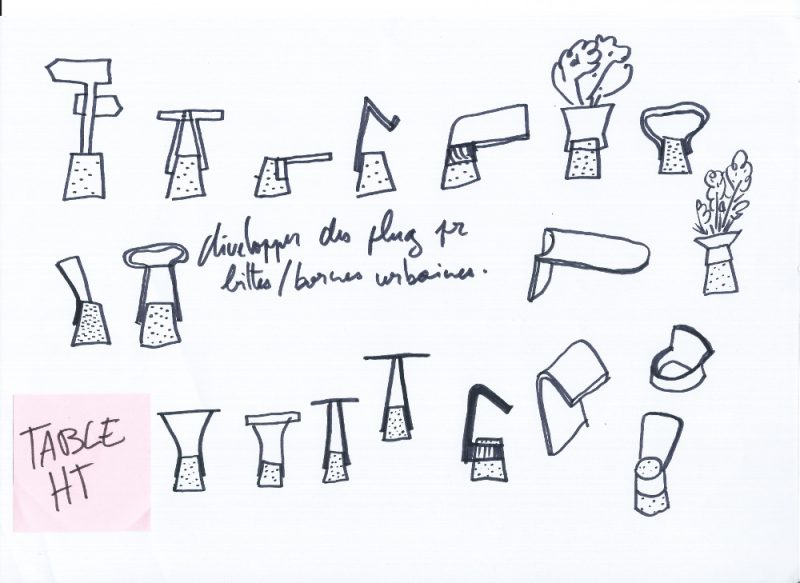 développer des plug pr
bittes/bornes urbaines.
TABLE
HT